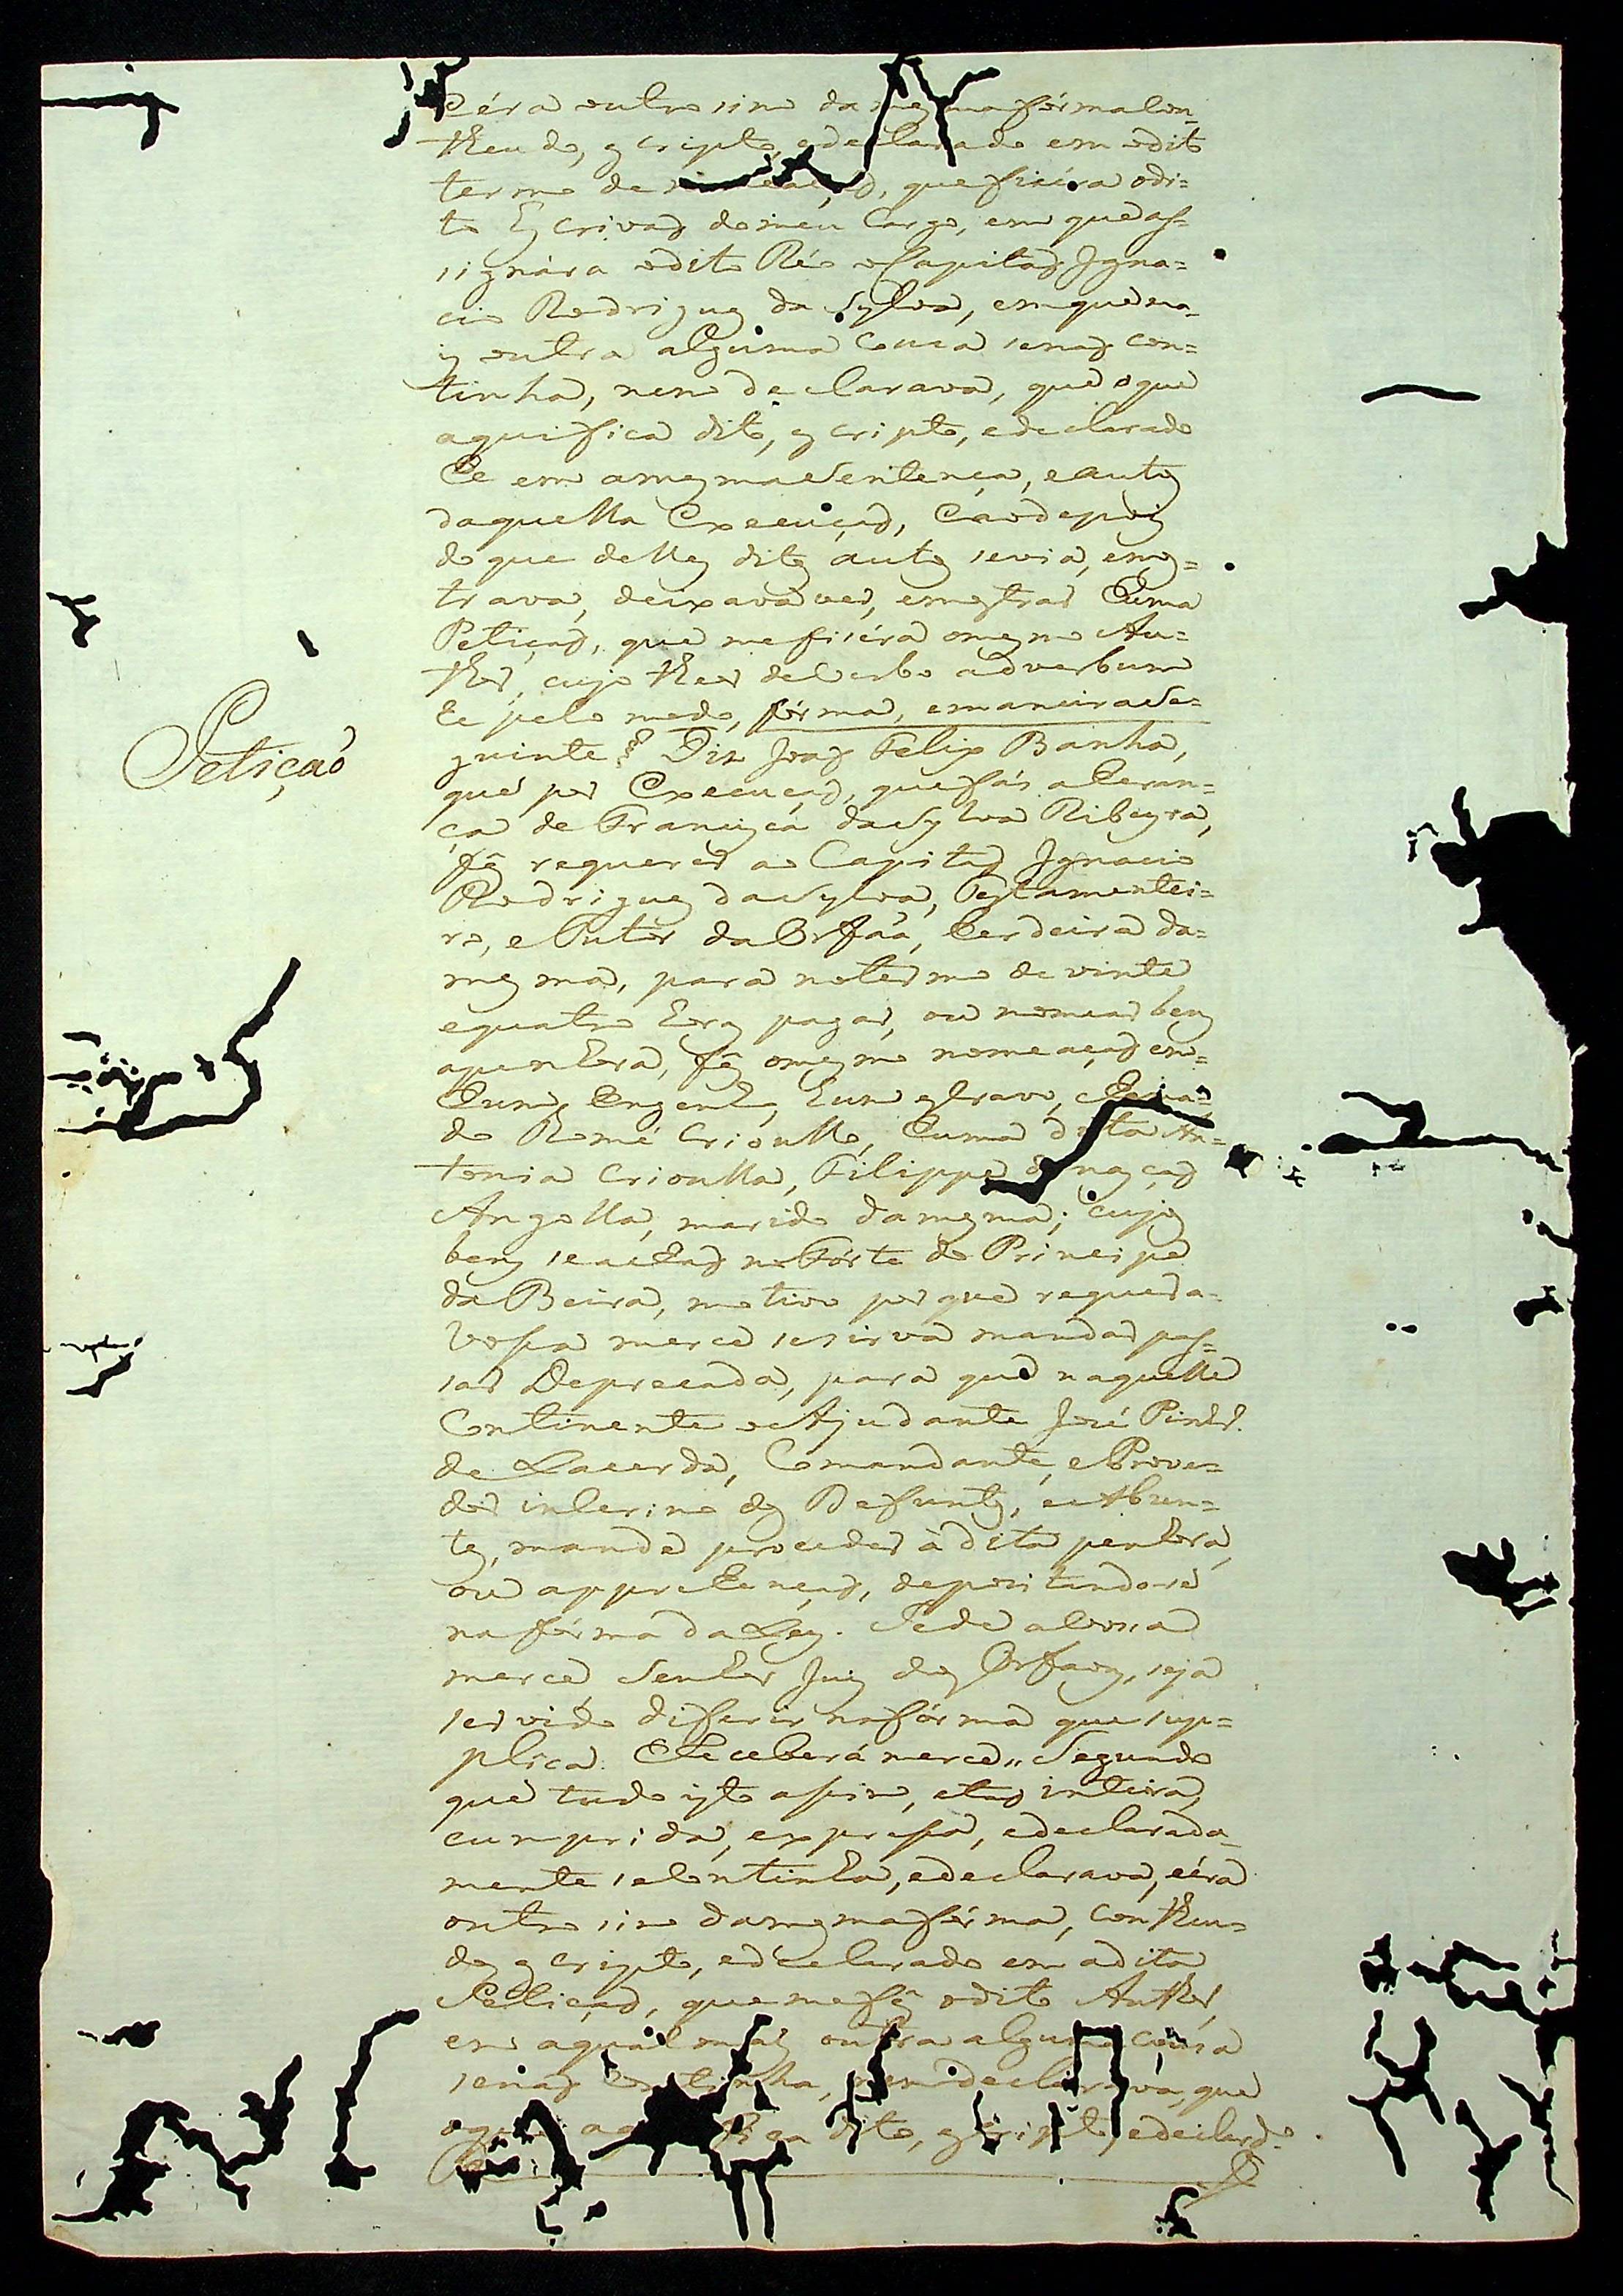 Eéra outro sim da mesma fórma con-
theudo, escripto, e declarado em o dito
termo de nomeação, que fizéra o di=
to Escrivaõ do meu Cargo, em que as=
signára o dito Réo o Capitaõ Igna=
cio Rodrigues da Sylva, em que ma-
is outra alguma Couza senaõ con=
tinha, nem declarava, que o que
aqui fica dito, escripto, e declarado
He em a mesma Sentença, e autos
daquella Execuçaõ, E ao depois
do que delles ditos autos se via, e mos=
trava, deixava ver, e mostrar Huma
Petiçaõ, que me fizéra o mesmo Au=
thor, cujo theor de Verbo adverbum
he pelo modo, fórma, e maneira Se=
guinte Diz Joaõ Felix Banha,
Petiçaõ
que por Execuçaõ, que fás a heran=
ça de Francisca da Sylva Ribeyra,
fes requerer ao Capitaõ Ignacio
Rodrigues da Sylva, Testamentei=
ro, e Tutor da Orfãa, herdeira da=
mesma, para no termo de vinte
e quatro horas pagar, ou nomear bens
a penhora, fes o mesmo nomeaçaõ em=
Hum Engenho, hum escravo, chama=
do Romé Crioullo, huma dita An=
tonia Crioulla, Filippe de naçaõ
Angolla, marido da mesma; cujos
bens se achaõ no Fórte do Principe
da Beira, motivo por que requer a-
Vossa merce se sirva mandar pas=
sar Deprecada, para que naquelle
Continente o Ajudante José Pinhr.
de Lacerda, Comandante, e Prove=
dor interino dos Defuntos, e Abzen=
tes, mande proceder à dita penhora,
ou apprehençaõ, depositando-se
na fórma da Ley. Pede a Vossa
merce Senhor Juiz dos Orfaons, seja
servido diferir na fórma que sup=
plica. E Receberá merce,, Segundo
que tudo isto assim, e taõ inteira,
cumprida, expressa, e declarada-
mente se Continha, e declarava, e éra
outro sim da mesma fórma, contheu=
do, escripto, e declarado em a dita
Petiçaõ, que me fes o dito Author,
em a qual mais outra alguma couza
senaõ Continha, nem declarava, que
o que aqui fica dito, escripto, e declarado.